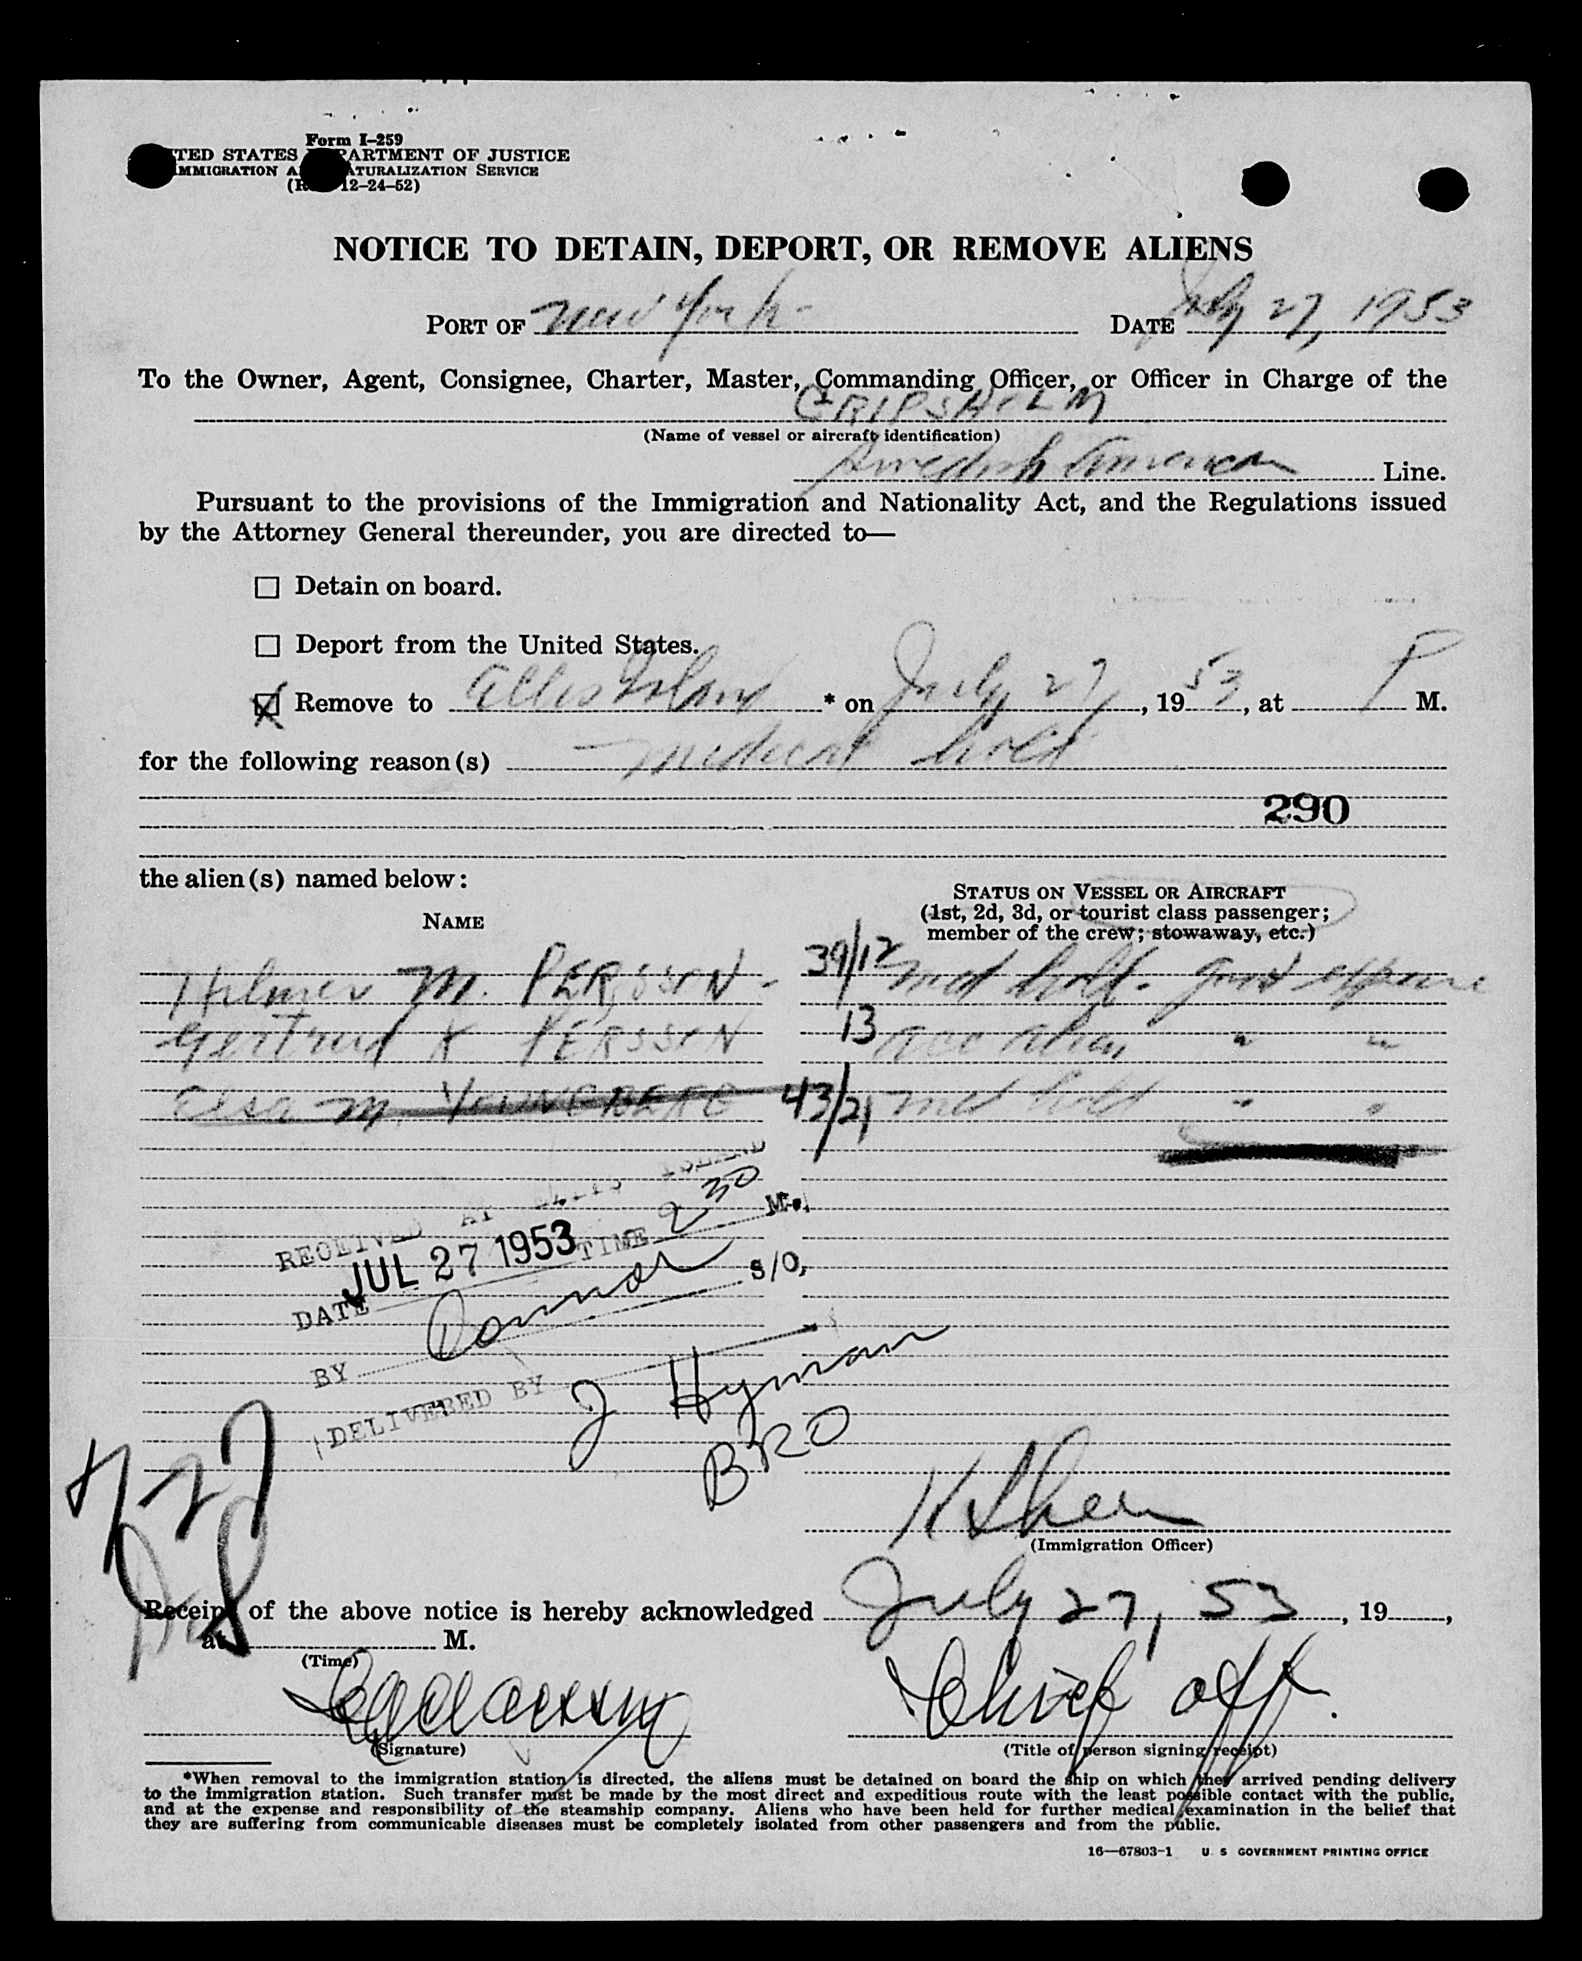 Form I-259
TED STATES PARTMENT OF JUSTICE
MMIGRATION A ATURALIZATION SERVICE
12-24-52)
NOTICE TO DETAIN, DEPORT, OR REMOVE ALIENS
PORT OF New York - DATE July 27, 1953
To the Owner, Agent, Consignee, Charter, Master, Commanding Officer, or Officer in Charge of the
GRIPSHOLM
(Name of vessel or aircraft identification)
Swedish American Line.
Pursuant to the provisions of the Immigration and Nationality Act, and the Regulations issued
by the Attorney General thereunder, you are directed to—
☐ Detain on board.
☐ Deport from the United States.
☒ Remove to Ellis Island * on July 27, 1953, at P M.
for the following reason(s) medical hold
290
the alien(s) named below:
NAME
STATUS ON VESSEL OR AIRCRAFT
(1st, 2d, 3d, or tourist class passenger;
member of the crew; stowaway, etc.)
Hilmer M. PERSSON - 39/12 med hold -
Gertrud K PERSSON 13 acc alien " "
Elsa M. YOUNGBERG 43/21 med hold " "
RECEIVED AT ELLIS ISLAND
DATE JUL 27 1953 TIME 2 30 M.
BY Connor S/O,
DELIVERED BY J Hyman
BRO
7 27
(Immigration Officer)
Receipt of the above notice is hereby acknowledged July 27, 53, 19 ,
at M.
(Time)
Chief off.
(Signature) (Title of person signing receipt)
*When removal to the immigration station is directed, the aliens must be detained on board the ship on which they arrived pending delivery
to the immigration station. Such transfer must be made by the most direct and expeditious route with the least possible contact with the public,
and at the expense and responsibility of the steamship company. Aliens who have been held for further medical examination in the belief that
they are suffering from communicable diseases must be completely isolated from other passengers and from the public.
16—67803-1 U. S. GOVERNMENT PRINTING OFFICE